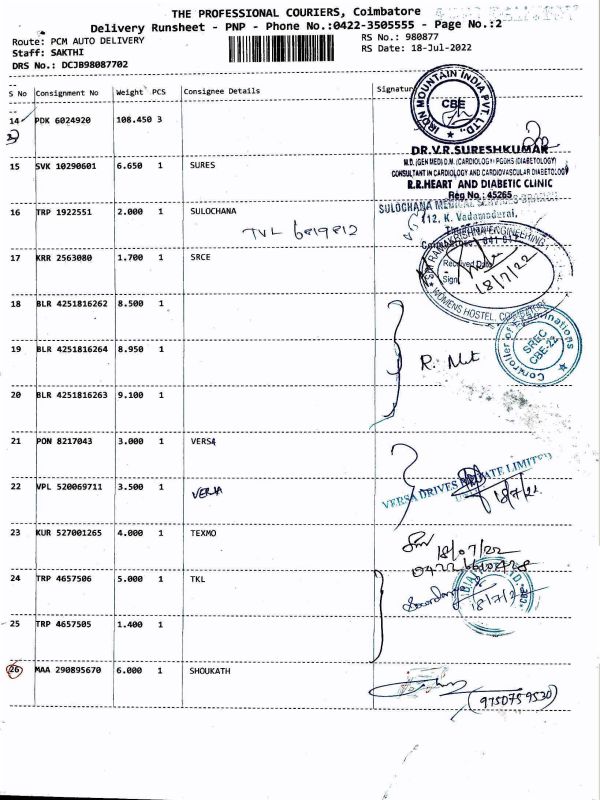 THE PROFESSIONAL COURIERS, Coimbatore
Delivery Runsheet - PNP - Phone No.:0422-3505555 - Page No.:2
Route: PCM AUTO DELIVERY
RS No.: 980877
Staff: SAKTHI
RS Date: 18-Jul-2022
DRS No.: DCJB98087702
S No Consignment No Weight PCS Consignee Details Signatur
IRON MOUNTAIN INDIA PVT. LTD.,
CBE
14 PDK 6024920 108.450 3
DR.V.R.SURESHKUMAR
M.D.(GEN MED) D.M.(CARDIOLOGY) PGDHS (DIABETOLOGY)
CONSULTANT IN CARDIOLOGY AND CARDIOVASCULAR DIABETOLOGY
R.R.HEART AND DIABETIC CLINIC
Reg No.: 45265
15 SVK 10290601 6.650 1 SURES
SULOCHANA MEDICAL
112, K. Vadamadurai,
16 TRP 1922551 2.000 1 SULOCHANA
TVL 6819812
SRI RAMAKRISHNA ENGINEERING
Received Date
Sign
18/7/22
WOMENS HOSTEL,
17 KRR 2563080 1.700 1 SRCE
18 BLR 4251816262 8.500 1
Controller of Examinations
SREC
CBE-22
19 BLR 4251816264 8.950 1
20 BLR 4251816263 9.100 1
21 PON 8217043 3.000 1 VERSA
VERSA DRIVES PRIVATE LIMITED
18/7/22
22 VPL 520069711 3.500 1
23 KUR 527001265 4.000 1 TEXMO
18/07/22
24 TRP 4657506 5.000 1 TKL
18/7/2
25 TRP 4657505 1.400 1
26 MAA 290895670 6.000 1 SHOUKATH
(9750759530)